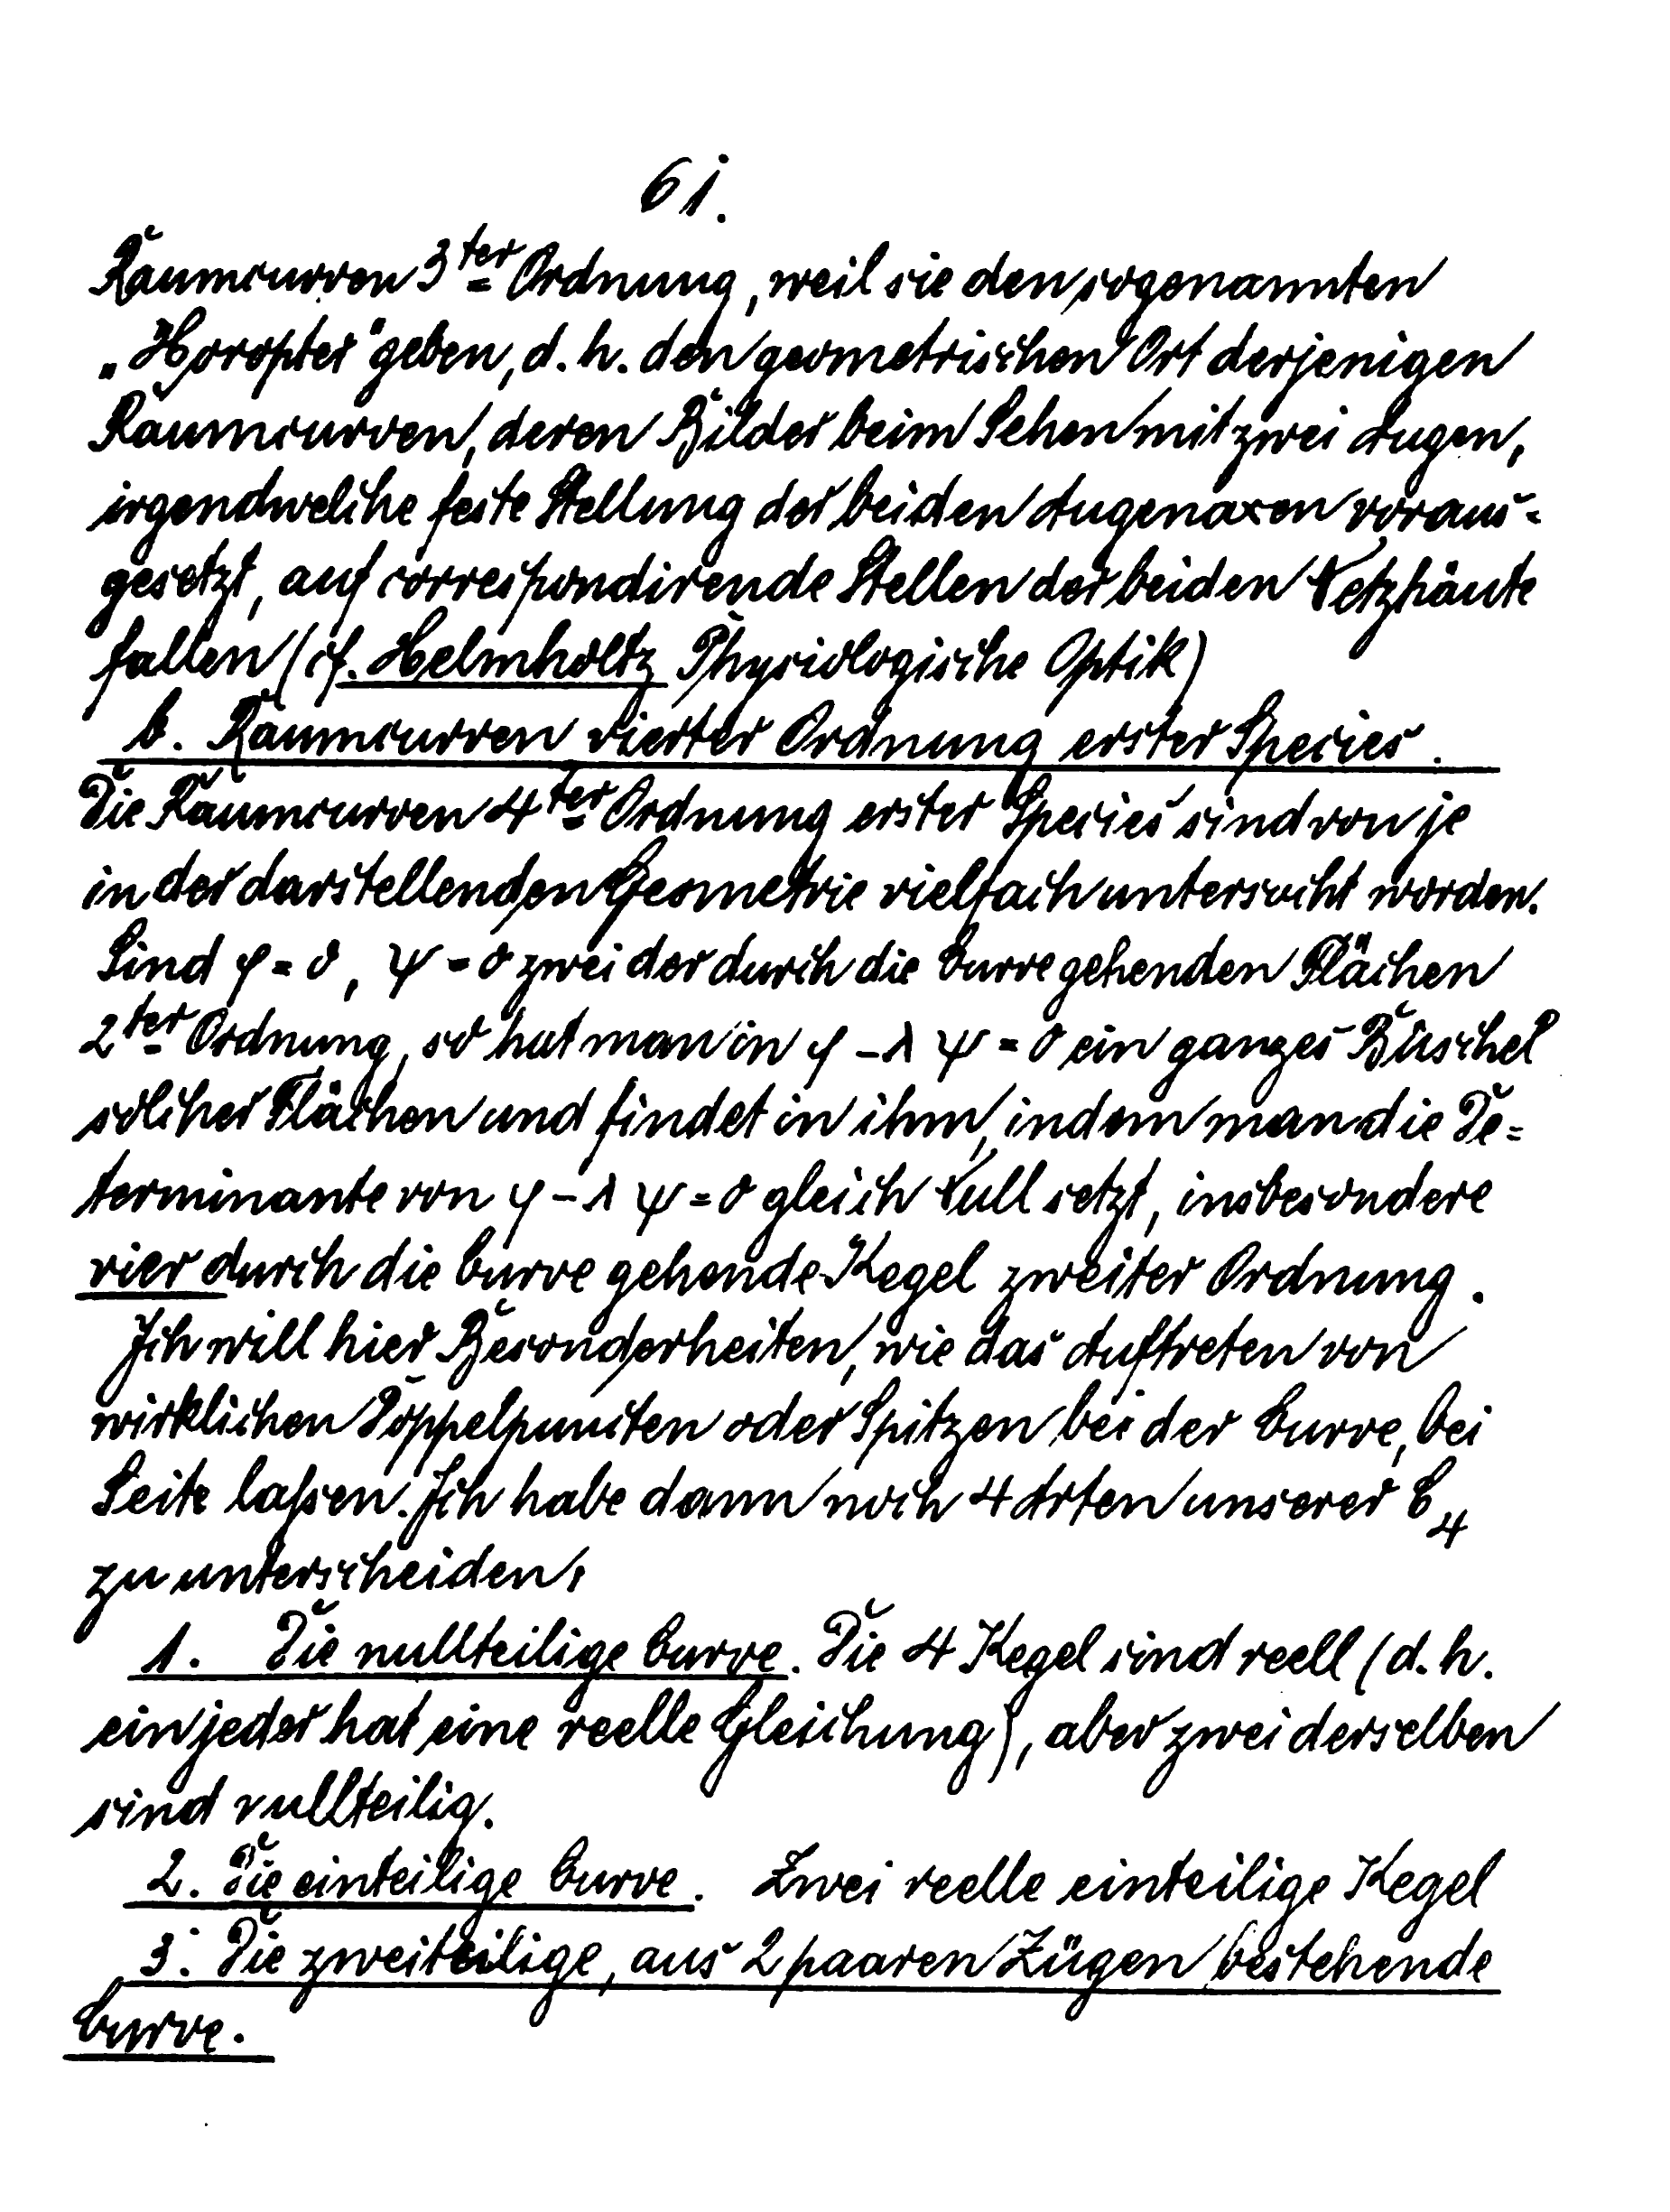 61.
Raumcurven 3ter Ordnung, weil sie den sogenannten
„Horopter" geben, d. h. den geometrischen Ort derjenigen
Raumcurven, deren Bilder beim Sehen mit zwei Augen,
irgendwelche feste Stellung der beiden Augenaxen voraus-
gesetzt, auf correspondirende Stellen der beiden Netzhäute
fallen (cf. Helmholtz Physiologische Optik)
b. Raumcurven vierter Ordnung erster Species.
Die Raumcurven 4ter Ordnung erster Species sind von je
in der darstellenden Geometrie vielfach untersucht worden.
Sind φ = 0, ψ = 0 zwei der durch die Curve gehenden Flächen
2ter Ordnung, so hat man in φ - λ ψ = 0 ein ganzes Büschel
solcher Flächen und findet in ihm, indem man die De=
terminante von φ - λ ψ = 0 gleich Null setzt, insbesondere
vier durch die Curve gehende Kegel zweiter Ordnung.
Ich will hier Besonderheiten, wie das Auftreten von
wirklichen Doppelpuncten oder Spitzen bei der Curve, bei
Seite laßen. Ich habe dann noch 4 Arten unserer C₄
zu unterscheiden:
1. Die nullteilige Curve. Die 4 Kegel sind reell (d. h.
ein jeder hat eine reelle Gleichung), aber zwei derselben
sind nullteilig.
2. Die einteilige Curve. Zwei reelle einteilige Kegel
3. Die zweiteilige, aus 2 paaren Zügen bestehende
Curve.